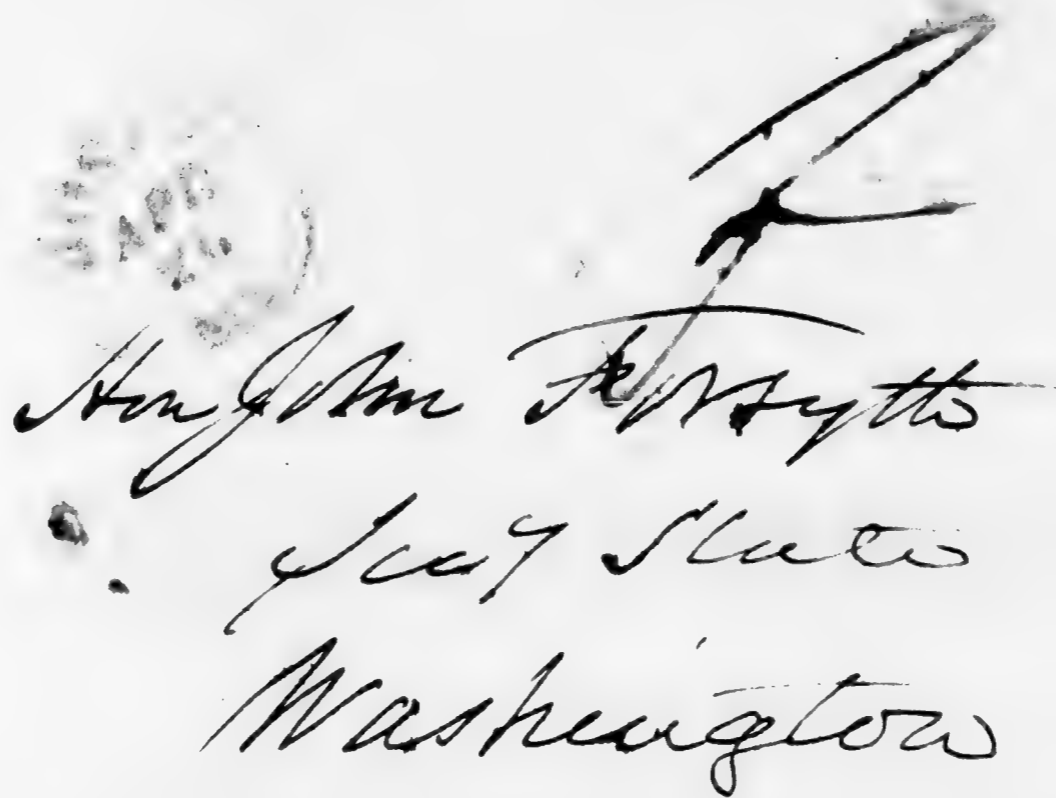 Hon John Forsyth
Secy State
Washington